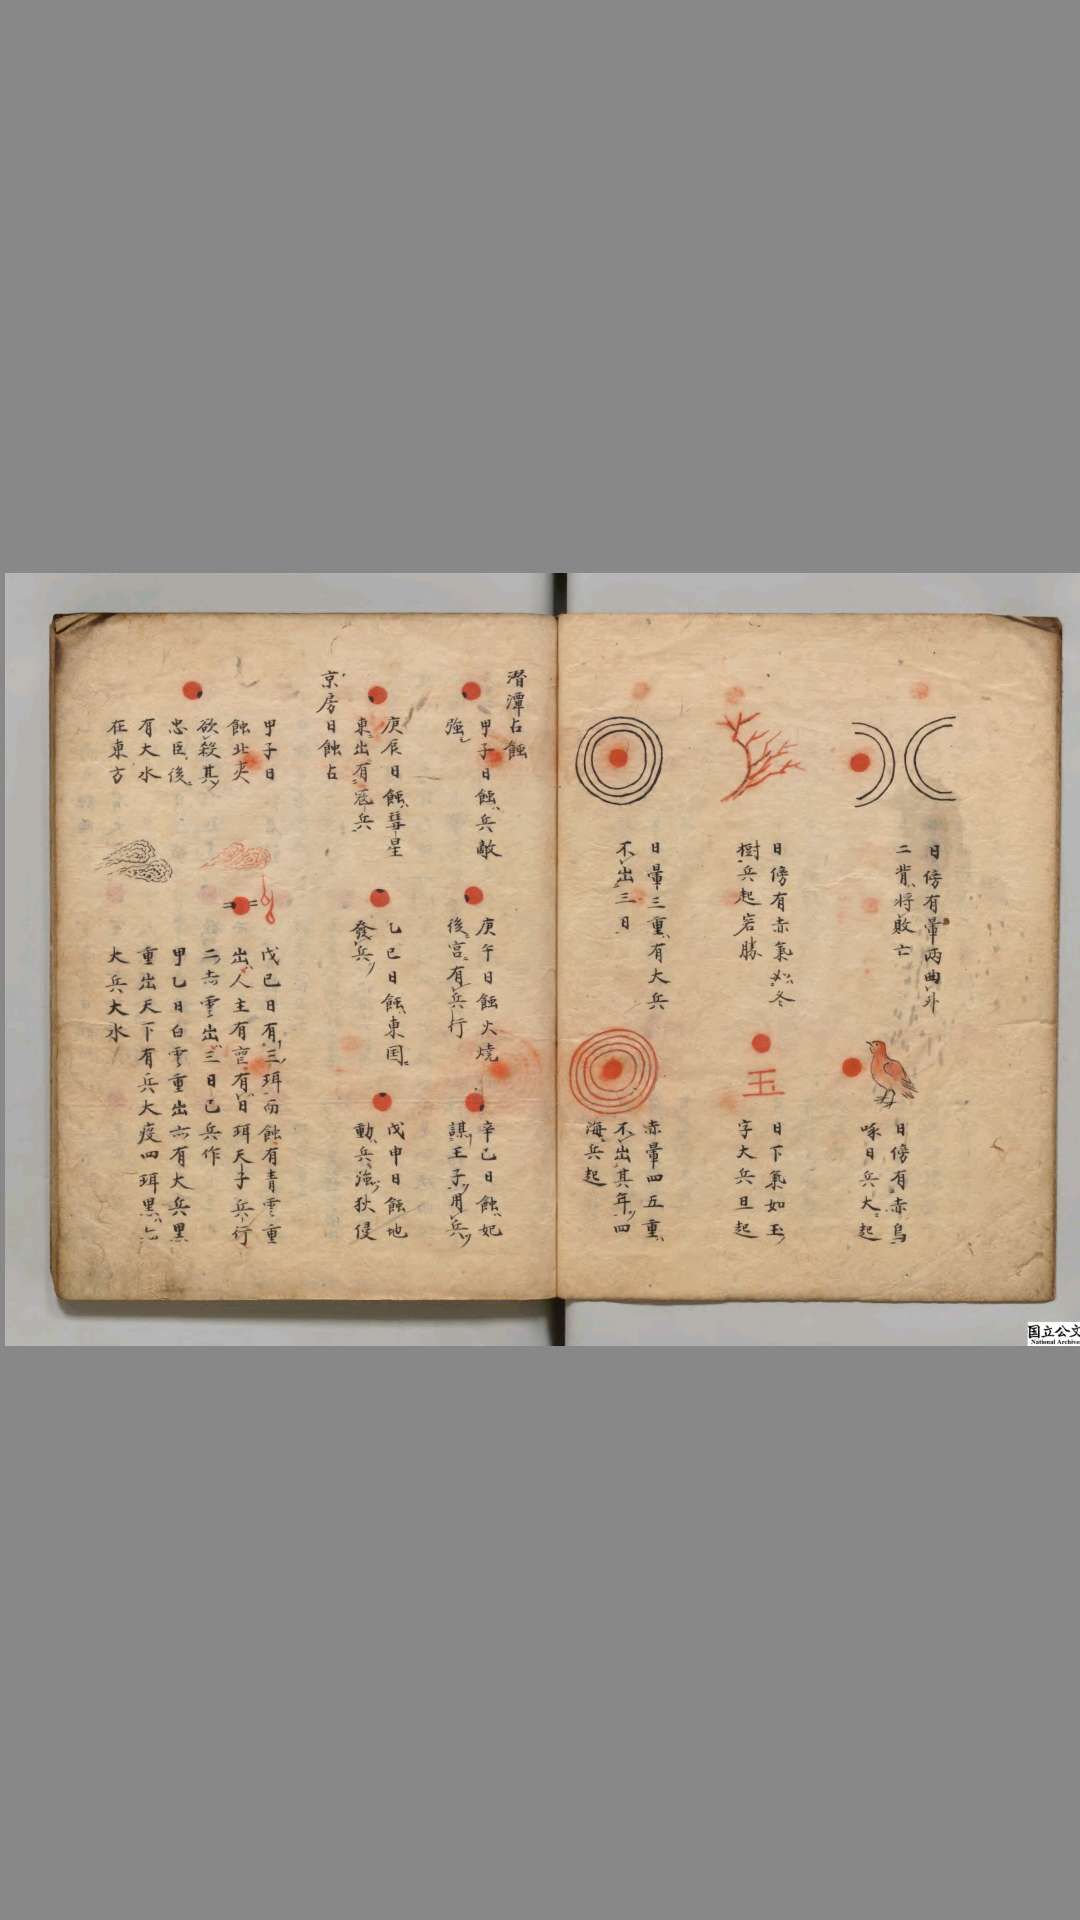 日傍有暈両曲外
二背将敗亡
日傍有赤烏
啄日兵大起
日傍有赤氣如冬
樹兵起客勝
日下氣如玉
字大兵且起
日暈三重有大兵
不出三日
赤暈四五重
不出其年四
海兵起
潜潭占蝕
甲子日蝕兵敵
強
庚午日蝕火燒
後宮有兵行
辛巳日蝕妃
謀王子用兵
庚辰日蝕彗星
東出有冦兵
乙巳日蝕東国
發兵
戊申日蝕地
動兵強狄侵
京房日蝕占
甲子日
蝕北夹
欲殺其
忠臣後
有大水
在東方
戊巳日有三珥而蝕有青雲重
出人主有有日珥天子兵行
二赤雲出三日已兵作
甲乙日白雲重出六有大兵黒
重出天下有兵大疫四珥黒
大兵大水
国立公文
National Archive